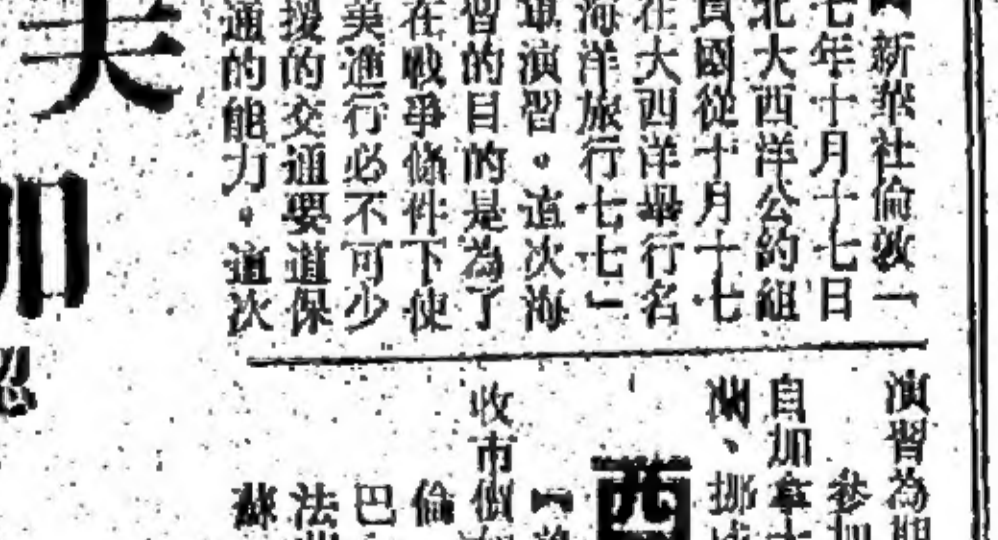 新華社倫敦一
七年十月十七日
北大西洋公約組
員國從十月十七
在大西洋舉行名
海洋旅行七七」
軍演習。這次海
習的目的是為了
在戰爭條件下使
美進行必不可少
援的交通要道保
通的能力。這次
演習為期
參加
自加拿大
蘭、挪威
西
收市價
倫
巴
法
蘇